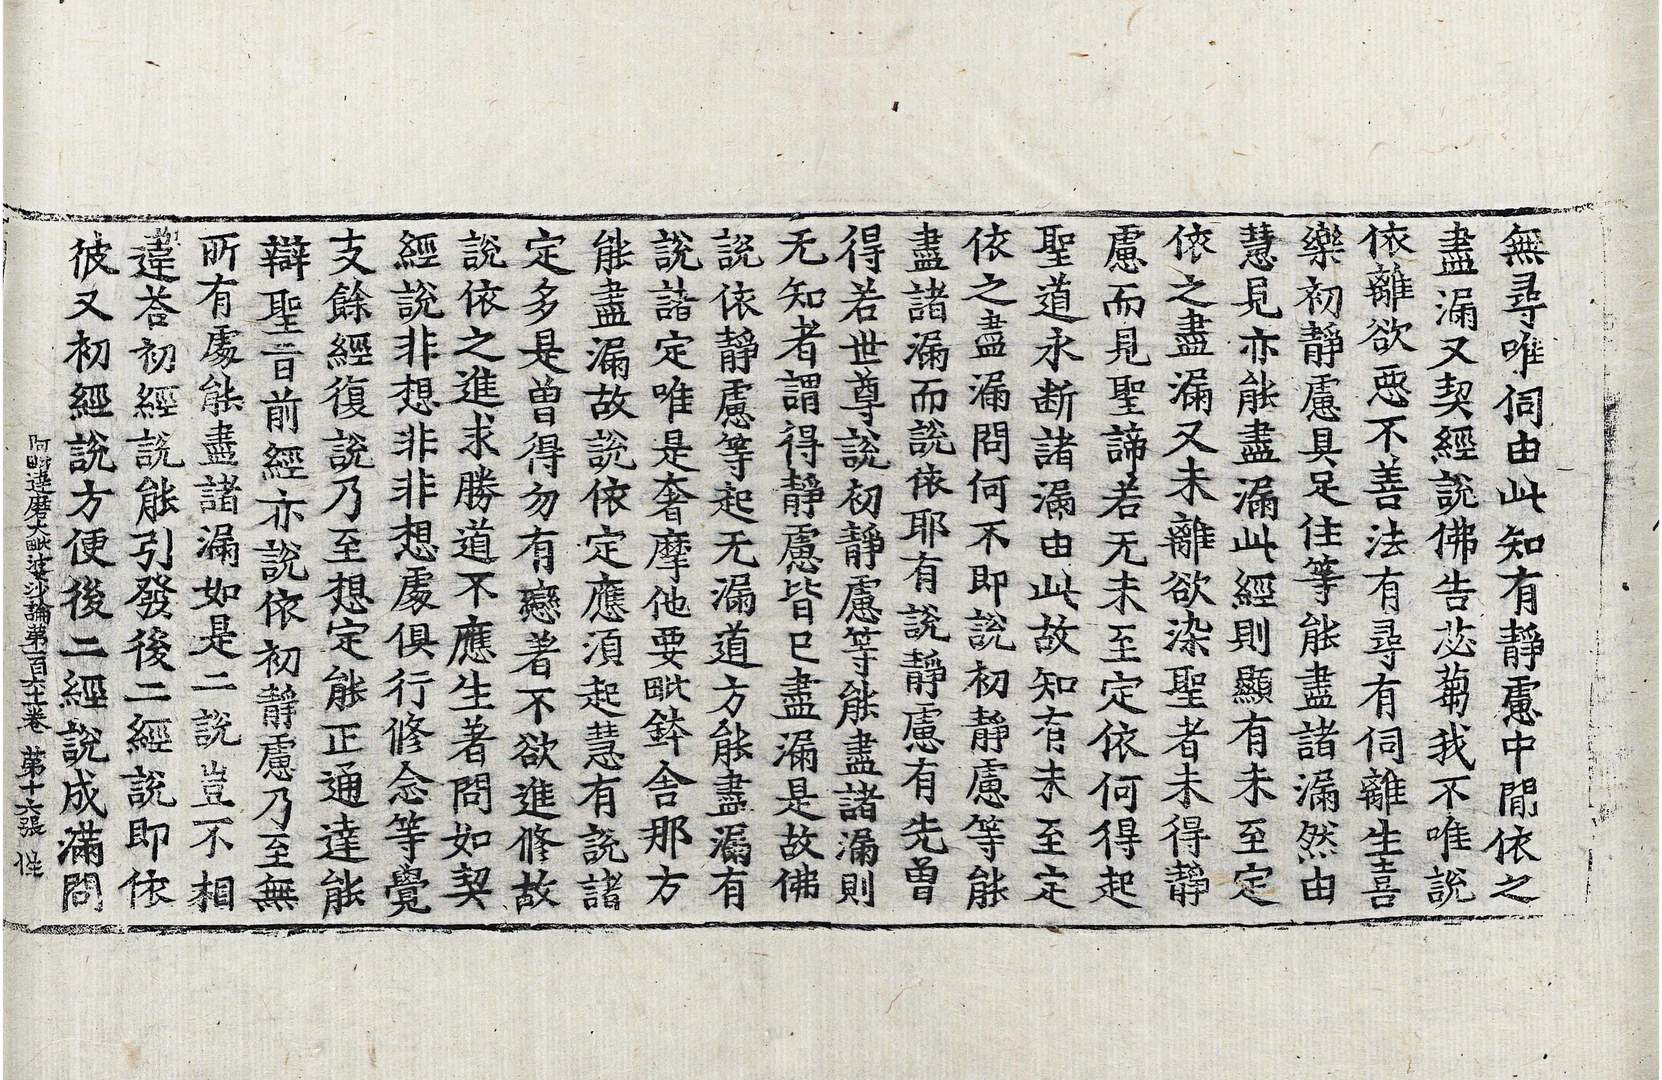 無尋唯伺由此知有靜慮中閒依之
盡漏又契經說佛告苾蒭我不唯說
依離欲惡不善法有尋有伺離生喜
樂初靜慮具足住等能盡諸漏然由
慧見亦能盡漏此經則顯有未至定
依之盡漏又未離欲染聖者未得靜
慮而見聖諦若无未至定依何得起
聖道永斷諸漏由此故知有未至定
依之盡漏問何不即說初靜慮等能
盡諸漏而說依耶有說靜慮有先曾
得若世尊說初靜慮等能盡諸漏則
无知者謂得靜慮皆已盡漏是故佛
說依靜慮等起无漏道方能盡漏有
說諸定唯是奢摩他要毗鉢舍那方
能盡漏故說依定應須起慧有說諸
定多是曾得勿有戀著不欲進修故
說依之進求勝道不應生著問如契
經說非想非非想處俱行修念等覺
支餘經復說乃至想定能正通達能
辯聖旨前經亦說依初靜慮乃至無
所有處能盡諸漏如是二說豈不相
違荅初經說能引發後二經說即依
彼又初經說方便後二經說成滿問
阿毗達磨大毗婆沙論第百六十一卷 第十六張 性